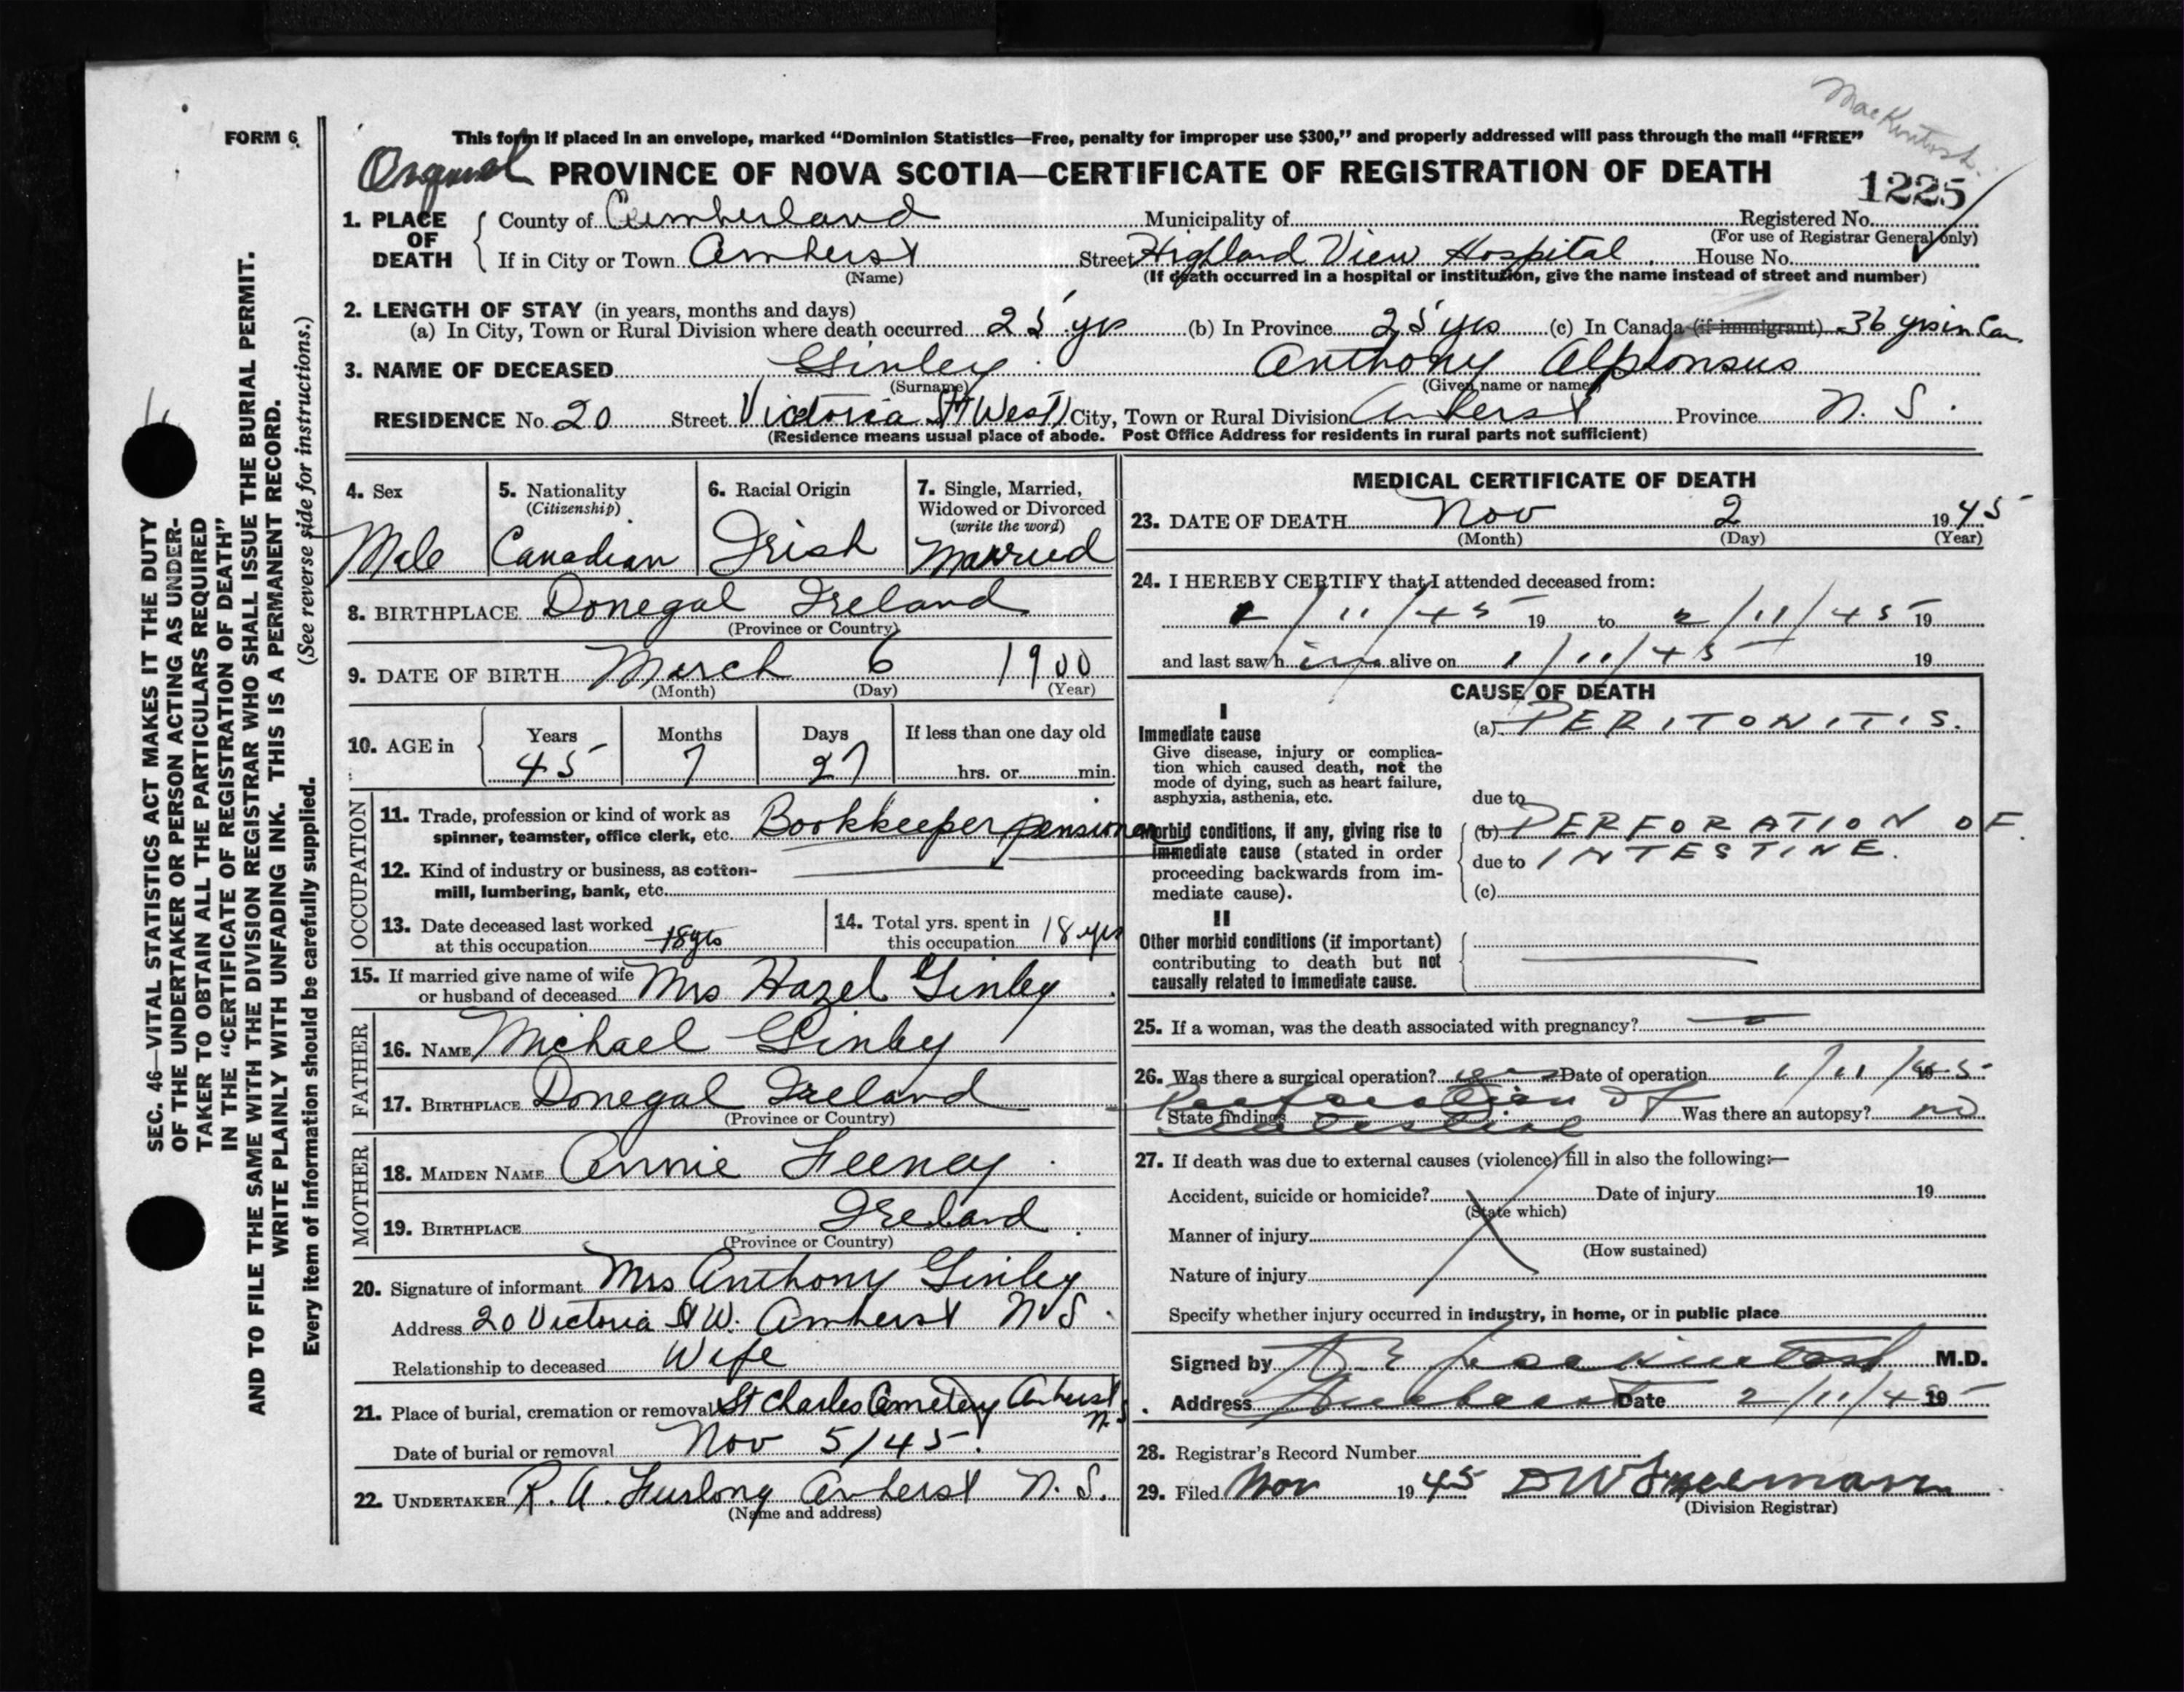 MacKintosh.
FORM 6
This form if placed in an envelope, marked “Dominion Statistics—Free, penalty for improper use $300,” and properly addressed will pass through the mail “FREE”
Original PROVINCE OF NOVA SCOTIA—CERTIFICATE OF REGISTRATION OF DEATH
1225
1. PLACE OF DEATH County of Cumberland Municipality of Registered No.
(For use of Registrar General only)
If in City or Town Amherst Street Highland View Hospital. House No.
(Name) (If death occurred in a hospital or institution, give the name instead of street and number)
2. LENGTH OF STAY (in years, months and days)
(a) In City, Town or Rural Division where death occurred 25 yrs (b) In Province 25 yrs (c) In Canada (if immigrant) 36 yrs in Can.
3. NAME OF DECEASED Ginley Anthony Alphonsus
(Surname) (Given name or names)
RESIDENCE No. 20 Street Victoria St (West) City, Town or Rural Division Amherst Province N. S.
(Residence means usual place of abode. Post Office Address for residents in rural parts not sufficient)
SEC. 46—VITAL STATISTICS ACT MAKES IT THE DUTY
OF THE UNDERTAKER OR PERSON ACTING AS UNDER-
TAKER TO OBTAIN ALL THE PARTICULARS REQUIRED
IN THE “CERTIFICATE OF REGISTRATION OF DEATH”
AND TO FILE THE SAME WITH THE DIVISION REGISTRAR WHO SHALL ISSUE THE BURIAL PERMIT.
WRITE PLAINLY WITH UNFADING INK. THIS IS A PERMANENT RECORD.
Every item of information should be carefully supplied. (See reverse side for instructions.)
4. Sex 5. Nationality 6. Racial Origin 7. Single, Married,
(Citizenship) Widowed or Divorced
(write the word)
Male Canadian Irish Married
8. BIRTHPLACE Donegal Ireland
(Province or Country)
9. DATE OF BIRTH March 6 1900
(Month) (Day) (Year)
10. AGE in Years Months Days If less than one day old
45 7 27 hrs. or min.
OCCUPATION
11. Trade, profession or kind of work as
spinner, teamster, office clerk, etc. Bookkeeper, pensioner
12. Kind of industry or business, as cotton-
mill, lumbering, bank, etc.
13. Date deceased last worked
at this occupation 18 yrs
14. Total yrs. spent in
this occupation 18 yrs
15. If married give name of wife
or husband of deceased Mrs Hazel Ginley
FATHER
16. NAME Michael Ginley
17. BIRTHPLACE Donegal Ireland
(Province or Country)
MOTHER
18. MAIDEN NAME Annie Feeney
19. BIRTHPLACE Ireland
(Province or Country)
20. Signature of informant Mrs Anthony Ginley
Address 20 Victoria St W. Amherst N S.
Relationship to deceased Wife
21. Place of burial, cremation or removal St Charles Cemetery Amherst N. S.
Date of burial or removal Nov 5/45.
22. UNDERTAKER R. A. Furlong Amherst N. S.
(Name and address)
MEDICAL CERTIFICATE OF DEATH
23. DATE OF DEATH Nov 2 1945
(Month) (Day) (Year)
24. I HEREBY CERTIFY that I attended deceased from:
1/11/45 19 to 2/11/45 19
and last saw him alive on 1/11/45 19
CAUSE OF DEATH
I
Immediate cause (a) PERITONITIS.
Give disease, injury or complica-
tion which caused death, not the
mode of dying, such as heart failure,
asphyxia, asthenia, etc.
due to
Morbid conditions, if any, giving rise to (b) PERFORATION OF
immediate cause (stated in order due to INTESTINE.
proceeding backwards from im-
mediate cause). (c)
II
Other morbid conditions (if important)
contributing to death but not
causally related to immediate cause.
25. If a woman, was the death associated with pregnancy?
26. Was there a surgical operation? yes Date of operation 1/11/45 19
State findings Perforation of Intestine Was there an autopsy? no
27. If death was due to external causes (violence) fill in also the following:—
Accident, suicide or homicide? Date of injury 19
(State which)
Manner of injury
(How sustained)
Nature of injury
Specify whether injury occurred in industry, in home, or in public place
Signed by MacKintosh M.D.
Address Amherst Date 2/11/45 19
28. Registrar's Record Number
29. Filed Nov 1945 D W
(Division Registrar)